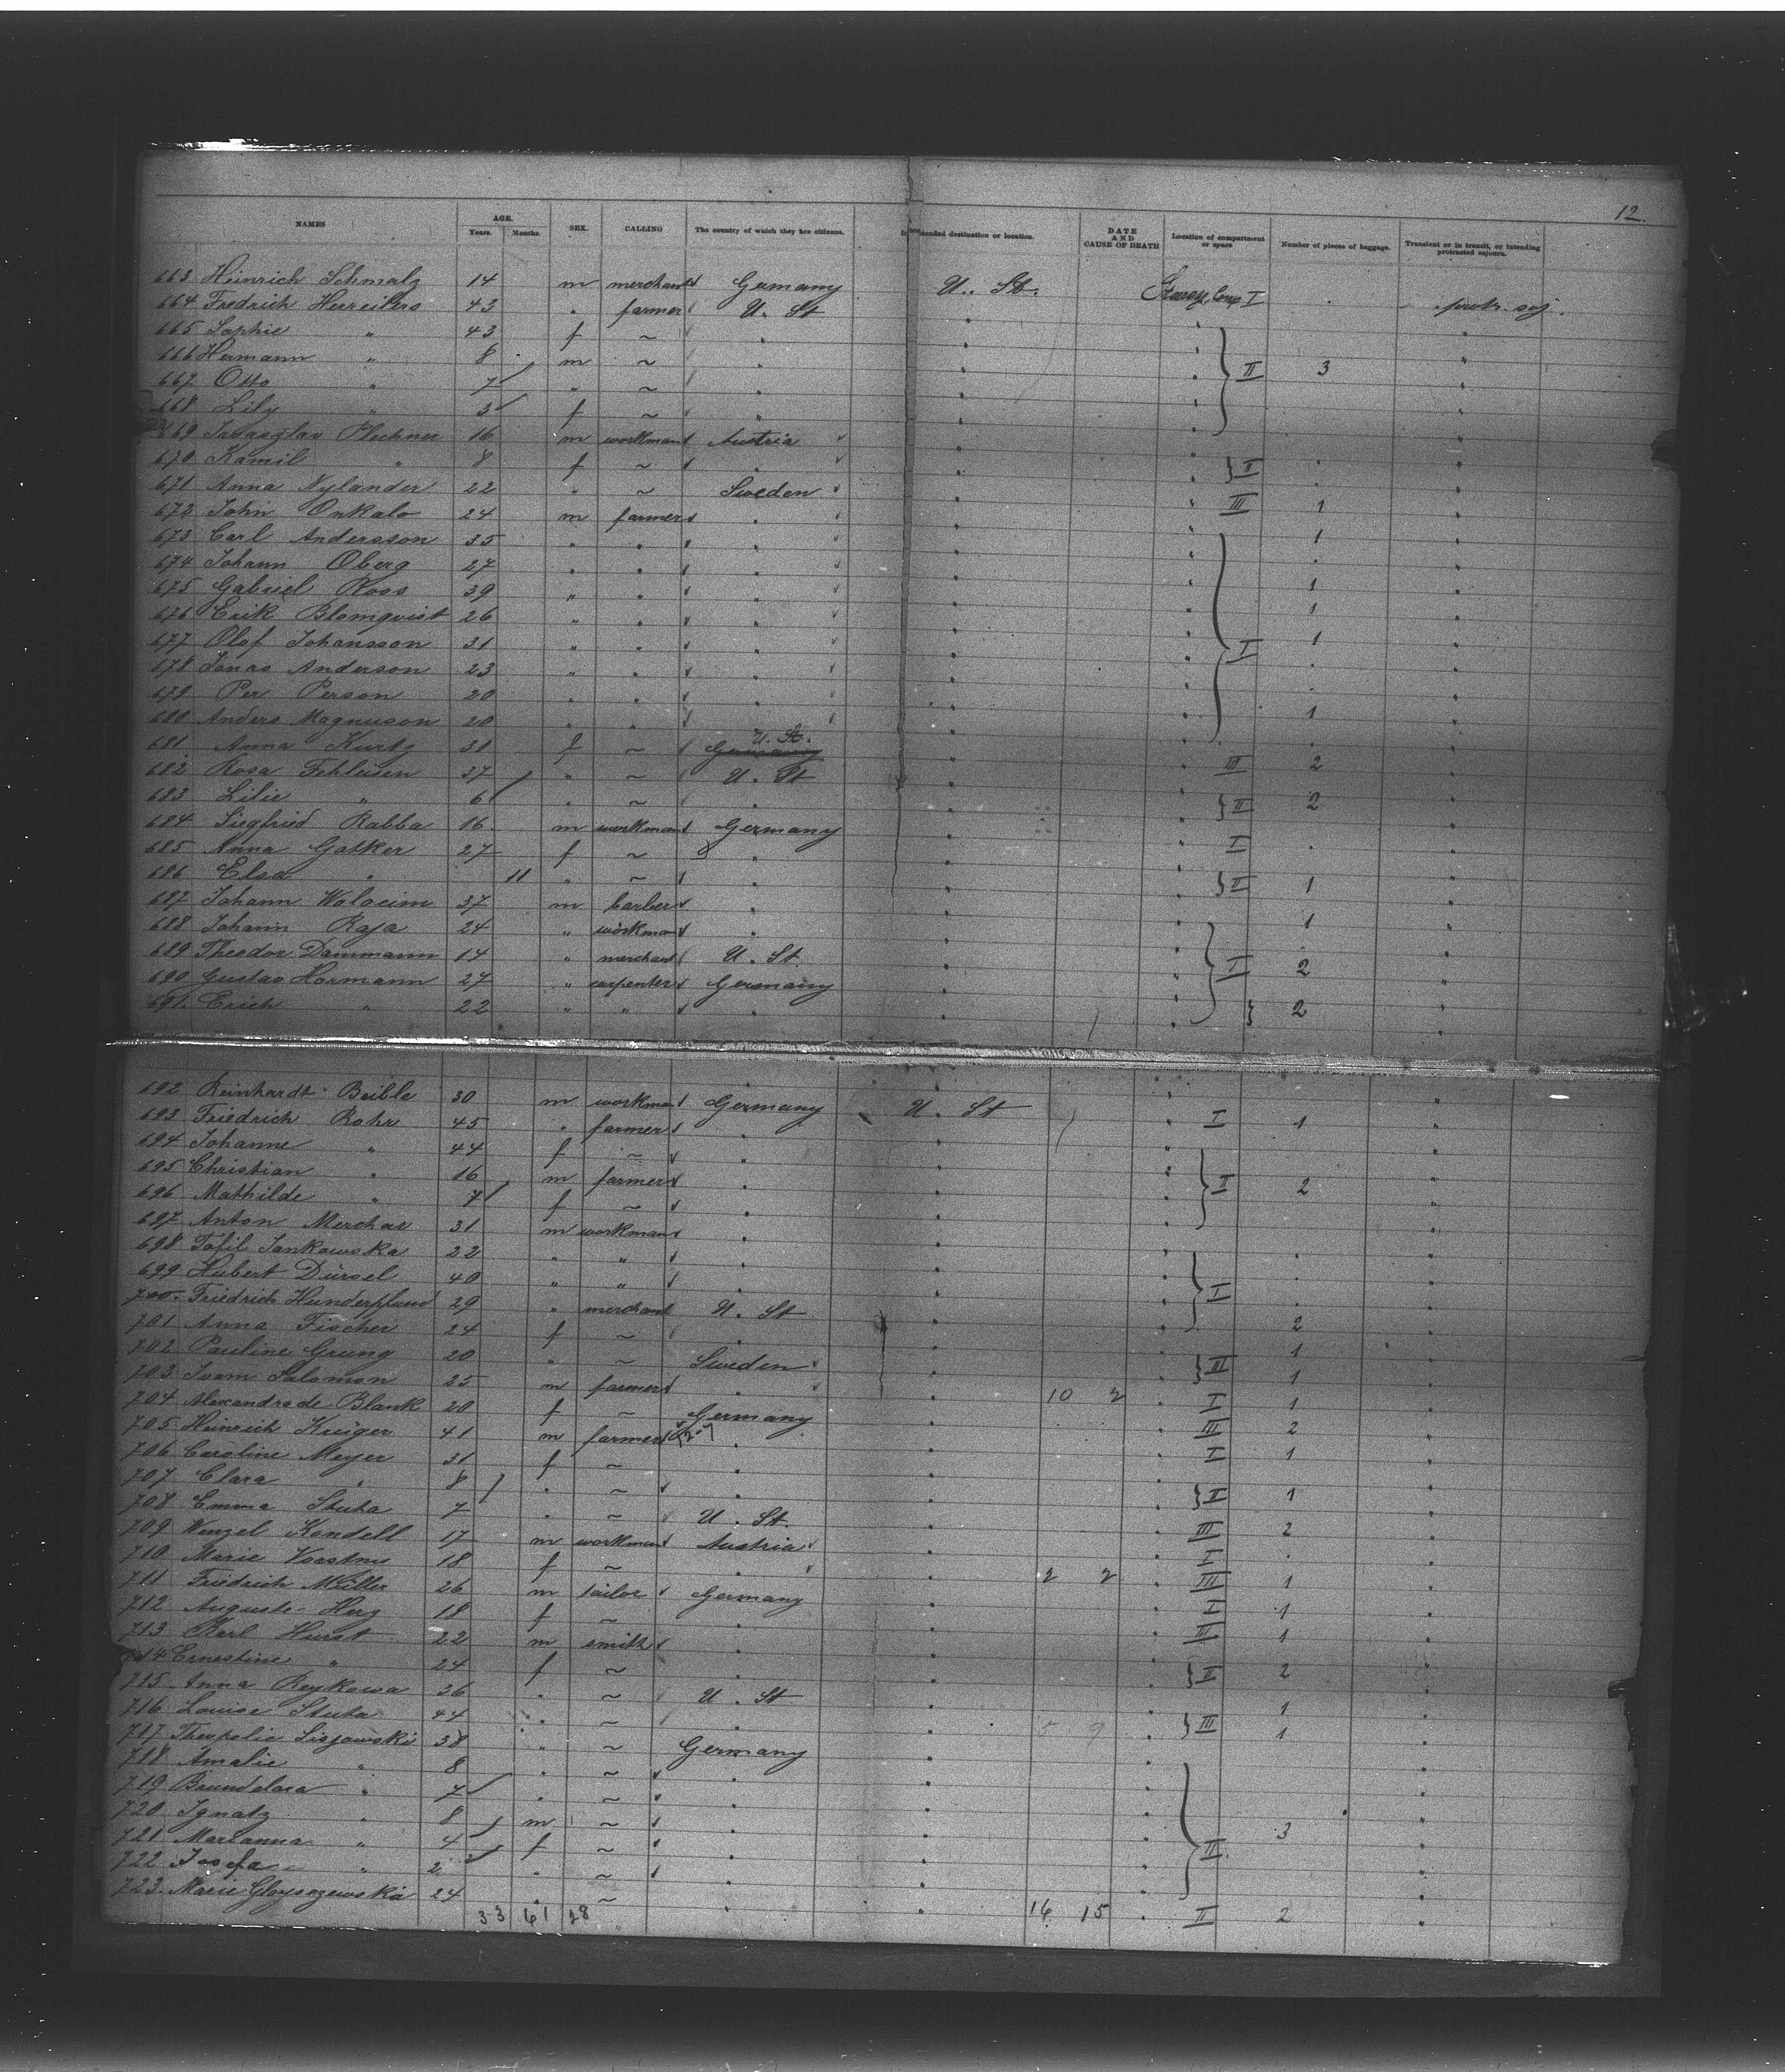 12.
NAMES AGE. Years. Months. SEX. CALLING The country of which they are citizens. Intended destination or location. DATE AND CAUSE OF DEATH Location of compartment or space Number of pieces of baggage. Transient or in transit, or intending protracted sojourn.
663 Heinrich Schmalz 14 m merchant Germany U. St. Steerage, Comp I . protr. soj.
664 Fredrich Herreilers 43 " farmer U. St " "
665 Sophie " 43 f ~ " " "
666 Hermann " 8 m ~ " " II 3 "
667 Otto " 7 " ~ " " "
668 Lily " 3 f ~ " " "
669 Plechner 16 m workman Austria " "
670 Kamil " 8 f ~ " " II . "
671 Anna Nylander 22 " ~ Sweden " III 1 "
672 John Onkalo 24 m farmer " " 1 "
673 Carl Andersson 35 " " " " . "
674 Johann Oberg 27 " " " " 1 "
675 Gabriel Ross 39 " " " " 1 "
676 Erik Blomqvist 26 " " " " 1 "
677 Olof Johansson 31 " " " " I . "
678 Jonas Anderson 23 " " " " . "
679 Per Person 20 " " " " 1 "
680 Anders Magnuson 20 " " " " . "
681 Anna Kurtz 31 f ~ Germany U. St. " III 2 "
682 Rosa Fehleisen 37 " ~ U. St " "
683 Lilie " 6 " ~ " " II 2 "
684 Siegfried Rabba 16 m workman Germany " I . "
685 Anna Gatker 27 f ~ " " "
686 Elsa " 11 " ~ " " II 1 "
687 Johann Wolocim 37 m barber " " 1 "
688 Johann Raja 24 " workman " " "
689 Theodor Dammann 14 " merchant U. St. " I 2 "
690 Gustav Hormann 27 " carpenter Germany " "
691 Erich " 22 " " " " 2 "
692 Reinhardt Beible 30 m workman Germany U. St I 1 "
693 Friedrich Rohr 45 " farmer " " "
694 Johanne " 44 f ~ " " "
695 Christian " 16 m farmer " " II 2 "
696 Mathilde " 7 f ~ " " "
697 Anton Merchar 31 m workman " " . "
698 Tofil Jankowska 22 " " " " . "
699 Hubert Dürsel 40 " " " " I . "
700. Friedrich Hunderpfund 29 " merchant U. St " 2 "
701 Anna Fischer 24 f ~ " " 1 "
702 Pauline Grung 20 " ~ Sweden " III 1 "
703 Salomon 25 m farmer " " 10 2 I 1 "
704 Alexandra de Blank 20 f ~ Germany " III 2 "
705 Heinrich Krüger 41 m farmer " " I 1 "
706 Caroline Meyer 31 f ~ " " "
707 Clara " 8 " ~ " " II 1 "
708 Emma Stuta 7 " ~ U. St. " III 2 "
709 Wenzel Kandell 17 m workman Austria " I . "
710 Marie 18 f ~ " " 2 2 III 1 "
711 Friedrich Müller 26 m tailor Germany " I 1 "
712 Auguste Herz 18 f ~ " " III 1 "
713 Karl Hurst 22 m smith " " "
714 Ernestine " 24 f ~ " " II 2 "
715 Anna Reykowa 36 " ~ U. St " 1 "
716 Louise Stuta 44 " ~ " " 5 9 III 1 "
717 Sissowski 38 " ~ Germany " "
718 Amalie " 8 " ~ " " "
719 " 7 " ~ " " "
720 Ignatz " 8 m ~ " " 3 "
721 Marianna " 4 f ~ " " II. "
722 Josefa " 2 " ~ " " "
723. Marie 24 " ~ " " II 2 "
33 61 28 16 15